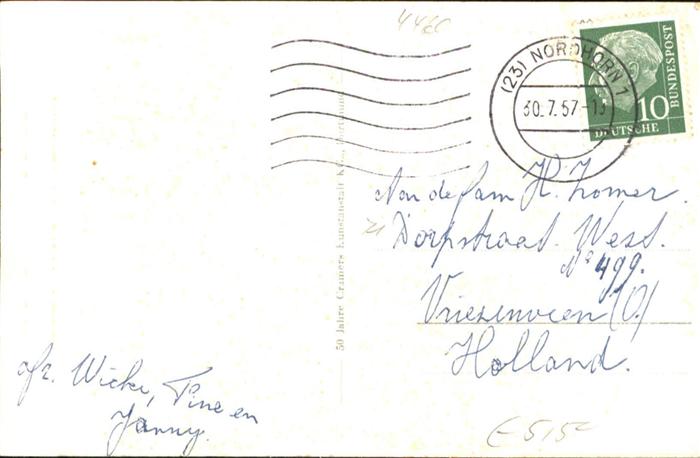 (23) NORDHORN 1
30.7.57-13
10
DEUTSCHE
BUNDESPOST
Aan de fam H. Kromer.
Dorpstraat. West.
No 499.
Vriezenveen (O.)
Holland.
afz. Wicke, Tine en
Janny.
50 Jahre Cramers Kunstanstalt KG., Dortmund
E 515